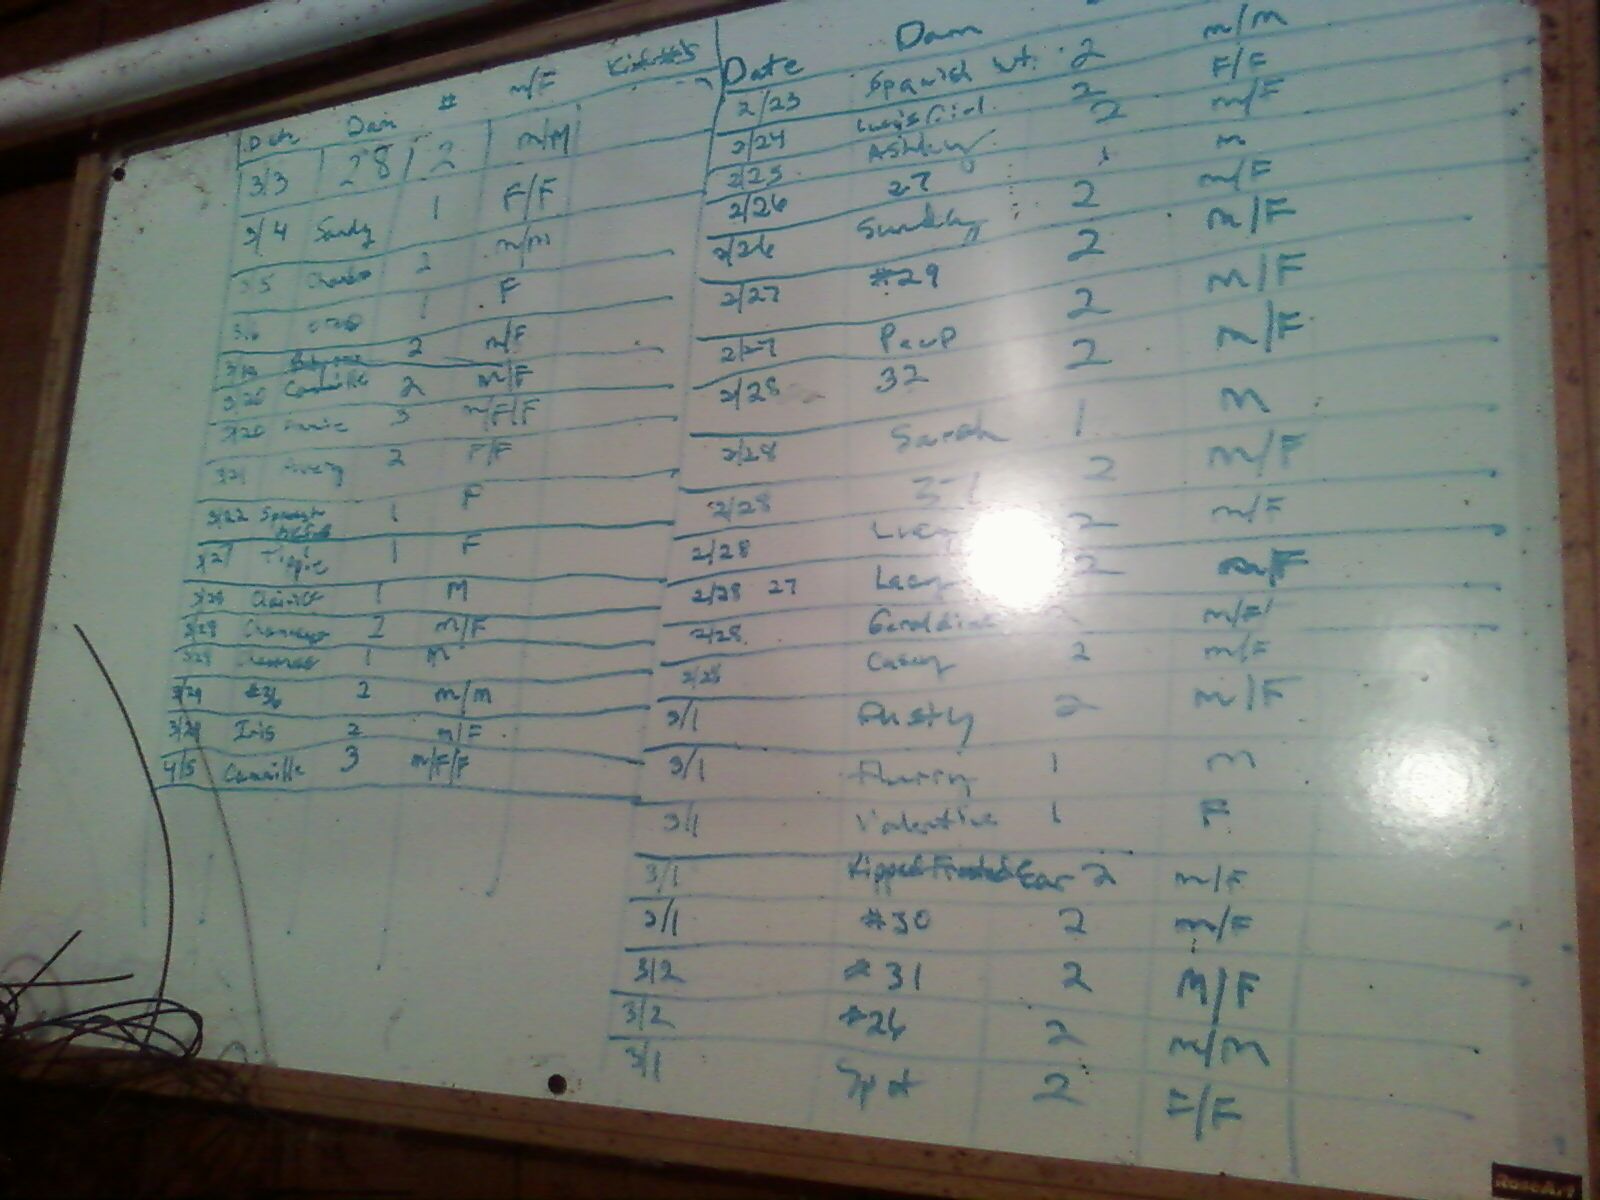 Date Dam # M/F
3/3 28 2 M/M
3/4 Sandy 1 F/F
3/5 2 M/M
3/6 1 F
2 M/F
3/20 Camille 2 M/F
3/20 3 M/F/F
3/21 Avery 2 F/F
3/22 Spanish 1 F
3/27 1 F
3/28 1 M
3/29 2 M/F
3/29 1 M
3/29 #36 2 M/M
3/29 Iris 2 M/F
4/5 Camille 3 M/F/F
Date Dam
2/23 Spanish 2 M/M
2/24 Lucy's Girl 2 F/F
2/25 Ashley 2 M/F
2/26 27 1 M
2/26 Sunday 2 M/F
2/27 #29 2 M/F
2/27 2 M/F
2/28 32 2 M/F
2/28 Sarah 1 M
2/28 2 M/F
2/28 Lucy 2 M/F
2/28 27 Lacy 2 M/F
2/28 Geraldine M/F
2/28 Casey 2 M/F
3/1 Dusty 2 M/F
3/1 1 M
3/1 Valentine 1 F
3/1 Ear 2 M/F
3/1 #30 2 M/F
3/2 #31 2 M/F
3/2 #26 2 M/M
3/1 Spot 2 F/F
RoseArt